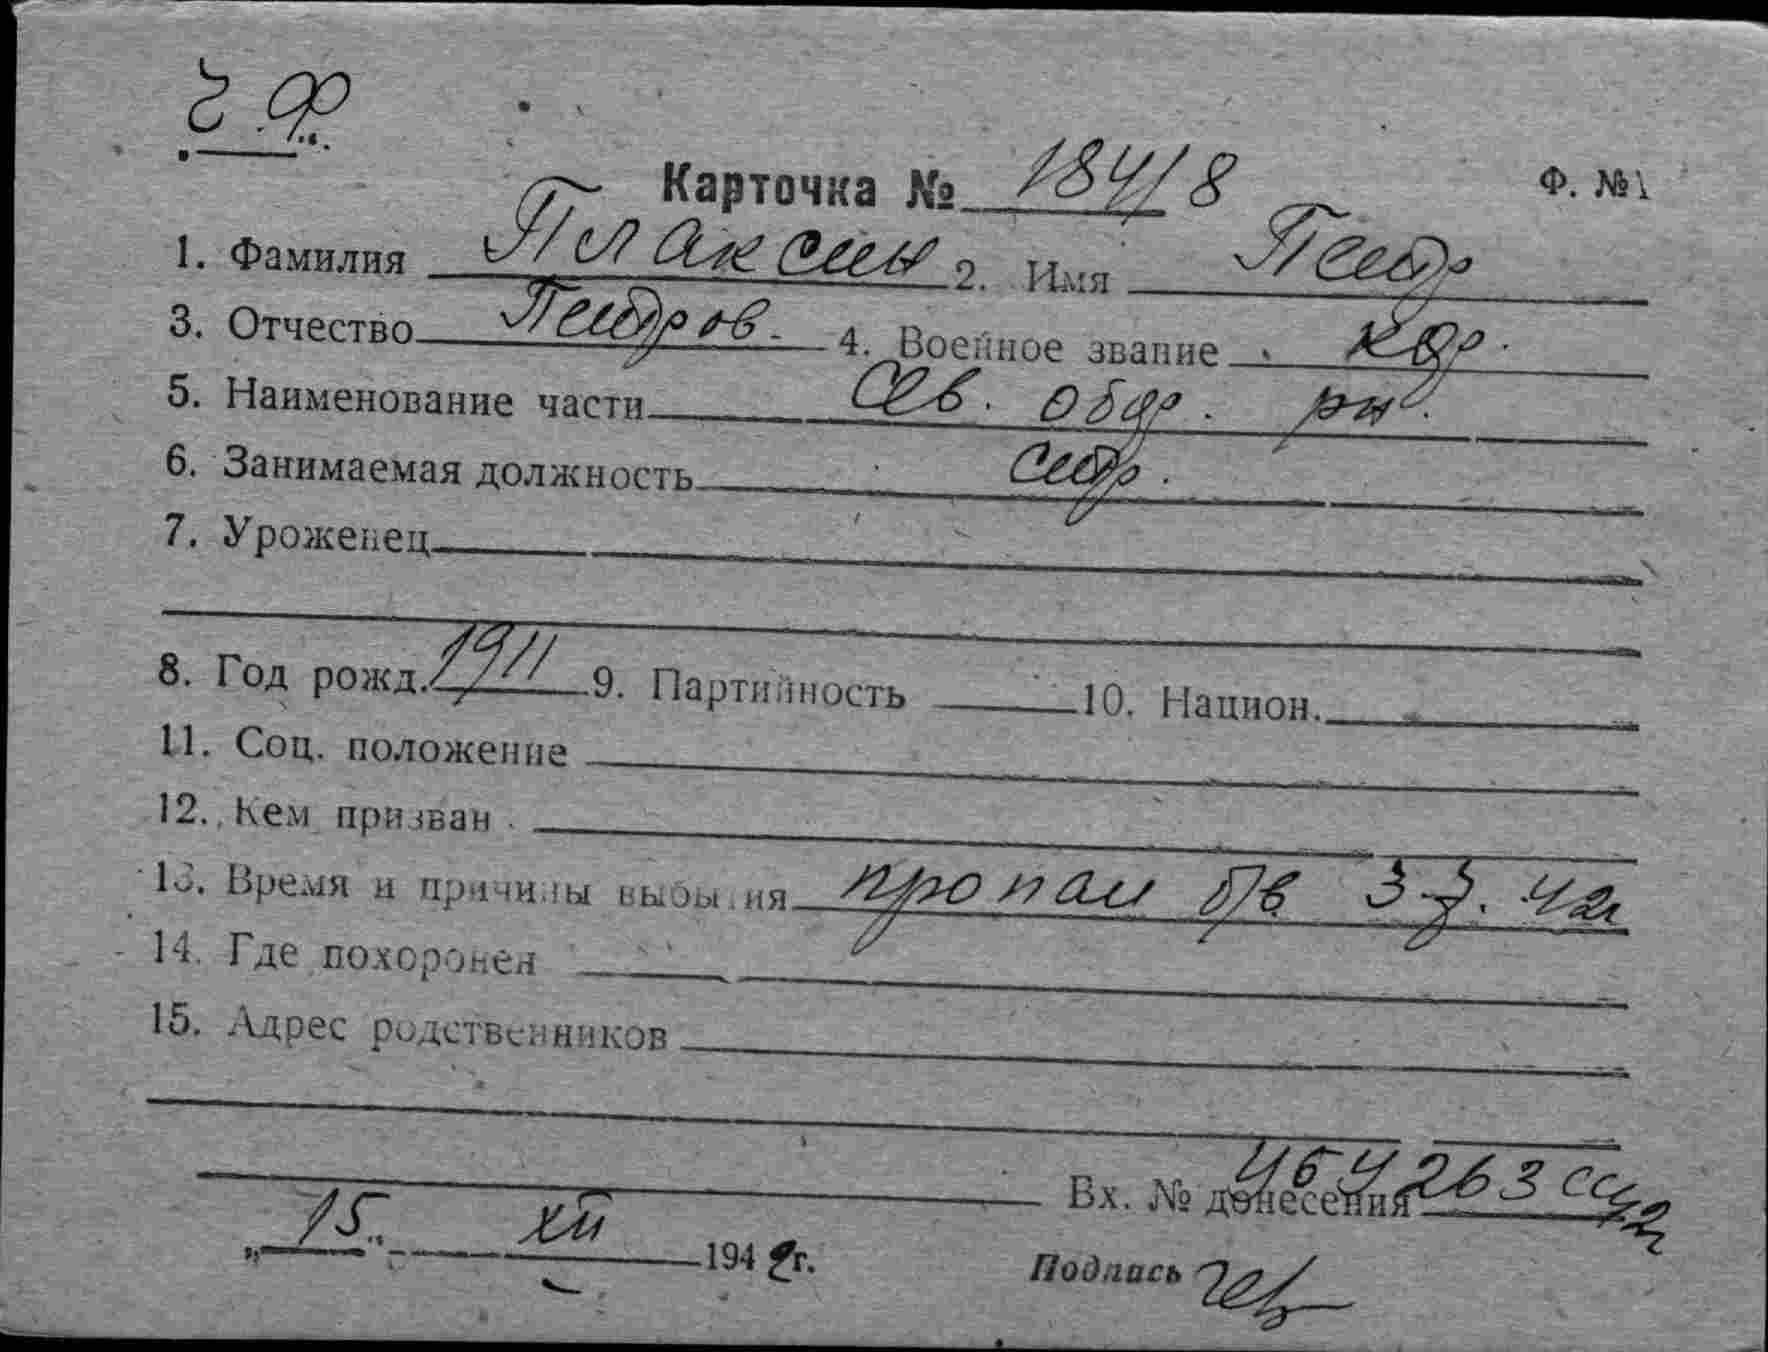 Ч Ф
Карточка № 184/8 Ф. №1
1. Фамилия Плаксин 2. Имя Петр
3. Отчество Петров. 4. Военное звание кр.
5. Наименование части Сев. обор. рн.
6. Занимаемая должность стр.
7. Уроженец
8. Год рожд. 1911 9. Партийность 10. Национ.
11. Соц. положение
12. Кем призван
13. Время и причины выбытия пропал б/в 3-7. 42г
14. Где похоронен
15. Адрес родственников
Вх. № донесения
"15" XII 1942г.
Подпись